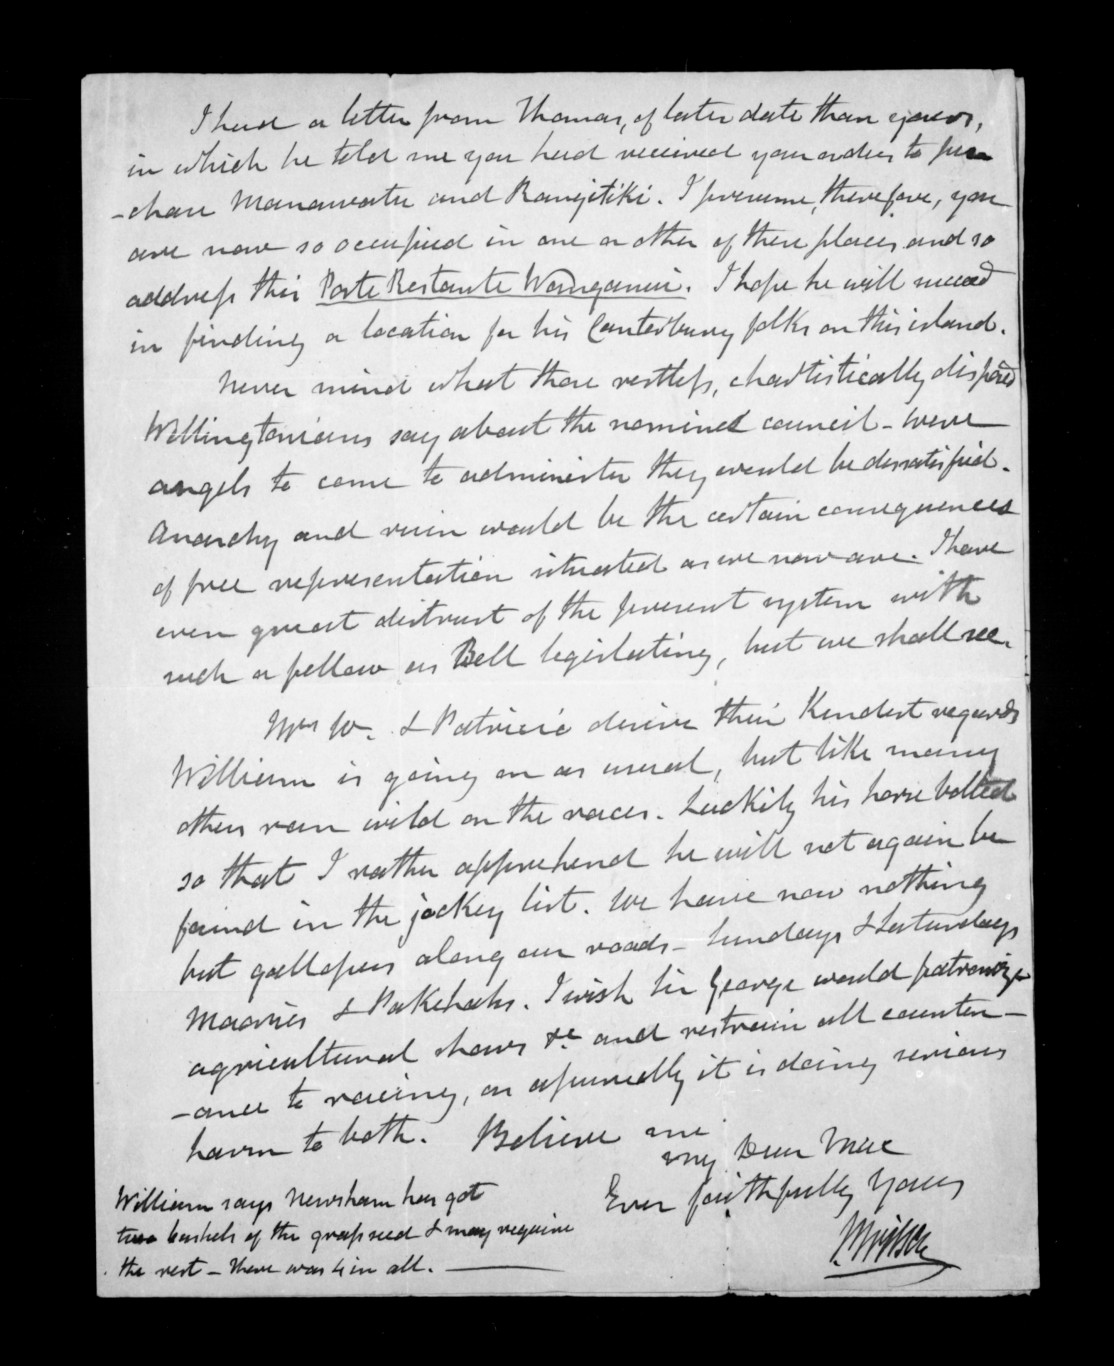 I had a letter from Thomas, of later date than yours,
in which he told me you had received your orders to pur
-chase Manawatu and Rangitiki. I presume, therefore, you
are now so occupied in one or other of these places and so
address this Poste Restante Wanganui. I hope he will succeed
in finding a location for his Canterbury folks on this island.
Never mind what those restless, chartistically disposed
Wellingtonians say about the nominee council - were
angels to come to administer they would be dissatisfied.
Anarchy and ruin would be the certain consequences
of free representation situated as we now are. I have
even great distrust of the present system with
such a fellow as Bell legislating, but we shall see.
Mrs W. & Patricia desire their kindest regards
William is going on as usual, but like many
others ran wild on the races. Luckily his horse bolted
so that I rather apprehend he will not again be
found in the jockey list. We have now nothing
but gallopers along our roads - Sundays & Saturdays
Maories & Pakehahs. I wish Sir George would patronize
agricultural shows &c and restrain all counten-
-ance to racing, as assuredly it is doing serious
harm to both. Believe me
my Dear Mac
Ever faithfully Yours
William says Newsham has got
two bushels of the grass seed & may require
the rest - there was 4 in all.